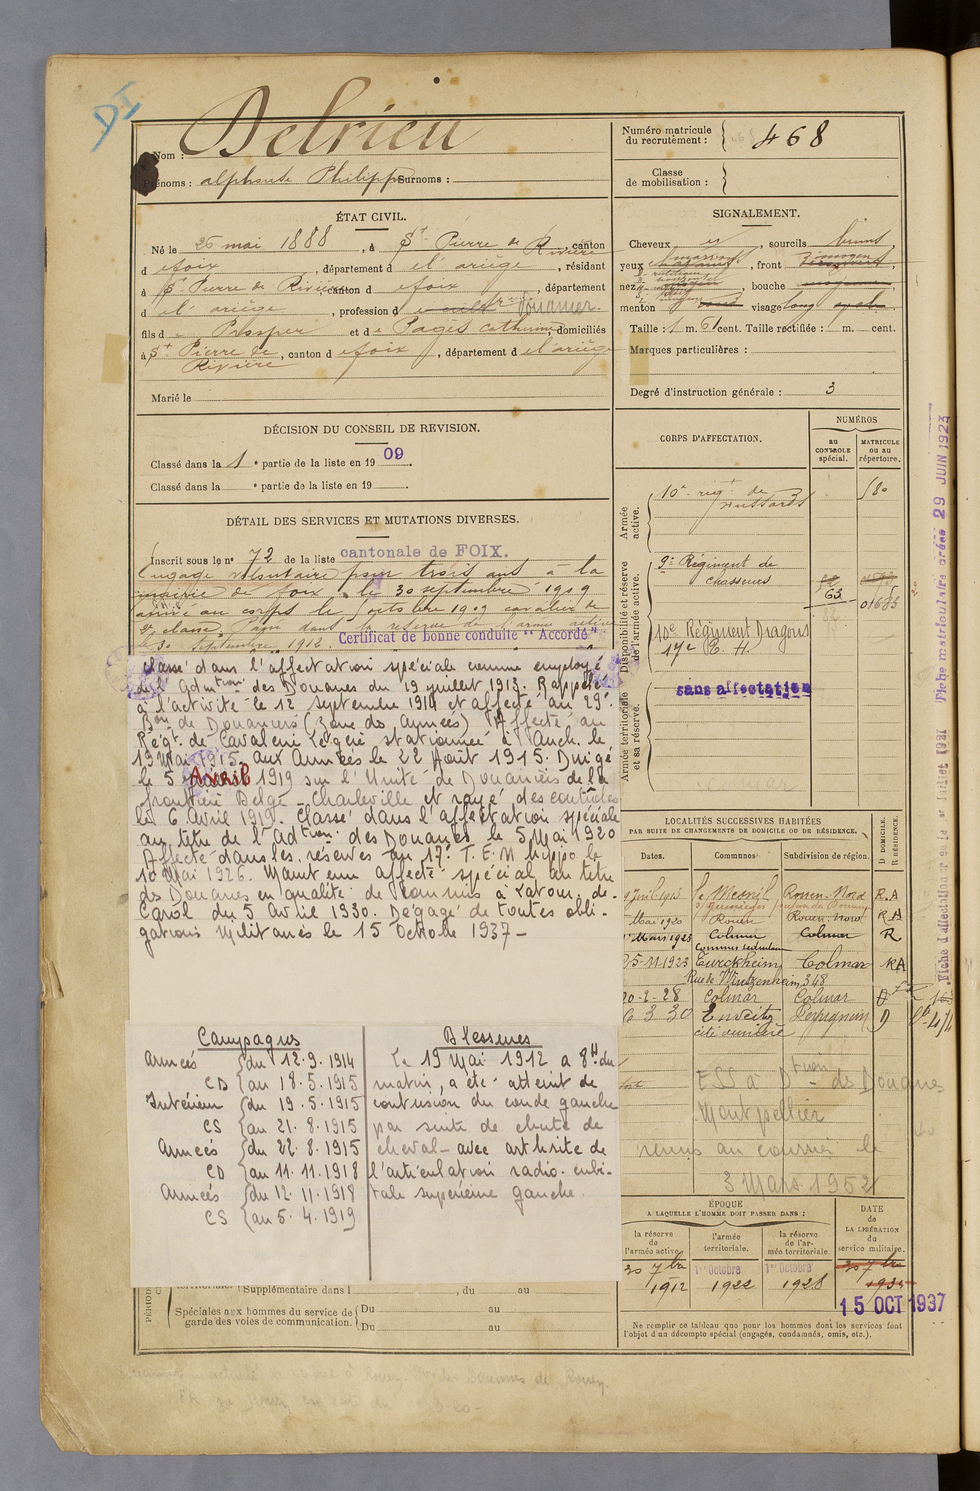 DI
Nom : Delrieu
Prénoms : alphonse Philippe Surnoms :
Numéro matricule du recrutement : 468
Classe de mobilisation :
ÉTAT CIVIL.
Né le 26 mai 1888, à St Pierre de Rivière, canton
d e foix, département d e l'ariège, résidant
à St Pierre de Rivière canton d e foix, département
d e l'ariège, profession d Douanier.
fils d e Prosper et d e Pagès Catherine, domiciliés
à St Pierre de Rivière, canton d e foix, département d e l'ariège
Marié le
SIGNALEMENT.
Cheveux, sourcils bruns
yeux marrons, front moyen
nez, bouche
menton visage long
Taille : 1 m. 61 cent. Taille rectifiée : m. cent.
Marques particulières :
Degré d'instruction générale : 3
DÉCISION DU CONSEIL DE REVISION.
Classé dans la 1e partie de la liste en 1909.
Classé dans la e partie de la liste en 19
DÉTAIL DES SERVICES ET MUTATIONS DIVERSES.
Inscrit sous le no 72 de la liste cantonale de FOIX.
Engagé volontaire pour trois ans à la
mairie de foix, le 30 septembre 1909
arrivé au corps le octobre 1909 cavalier de
2e classe. Passé dans la réserve de l'armée active
le 30 septembre 1912. Certificat de bonne conduite "Accordé"
Classé dans l'affectation spéciale comme employé
de l'Admtion des Douanes du 19 juillet 1913. Rappelé
à l'activité le 12 septembre 1914 et affecté au 29e
Bon de Douaniers (Zone des Armées) Affecté au
Régt. de Cavalerie Légère stationnée à Auch. le
19 Mai 1915. aux Armées le 22 Août 1915. Dirigé
le 5 Avril 1919 sur l'Unité de Douaniers de la
frontière Belge - Charleville et rayé des contrôles
le 6 Avril 1919. Classé dans l'affectation spéciale
au titre de l'Adtion des Douanes le 5 Mai 1920
Affecté dans les réserves au 17e T.E.M hippo le
10 Mai 1926. Maintenu affecté spécial au titre
des Douanes en qualité de Commis à Latour-de-
Carol du 5 Avril 1930. Dégagé de toutes obli-
gations Militaires le 15 Octobre 1937 -
Campagnes
Armées CD { du 12.9.1914
au 18.5.1915
Intérieur CS { du 19.5.1915
au 21.8.1915
Armées CD { du 22.8.1915
au 11.11.1918
Armées CS { du 12.11.1918
au 5.4.1919
Blessures
Le 19 Mai 1912 a 8H du
matin, a été atteint de
contusion du coude gauche
par suite de chute de
cheval - avec arthrite de
l'articulation radio-cubi-
tale supérieure gauche.
Supplémentaire dans l, du au
Spéciales aux hommes du service de garde des voies de communication. { Du au
Du au
CORPS D'AFFECTATION.
NUMÉROS
au CONTROLE spécial.
MATRICULE ou au répertoire.
Armée active.
10e régt de Hussards 180
Disponibilité et réserve de l'armée active.
9e Régiment de Chasseurs
63 01683
10e Régiment Dragons
17e E. H.
Armée territoriale et sa réserve.
sans affectation
LOCALITÉS SUCCESSIVES HABITÉES
PAR SUITE DE CHANGEMENTS DE DOMICILE OU DE RÉSIDENCE.
D DOMICILE. R RÉSIDENCE.
Dates. Communes. Subdivision de région.
1913 Le Mesnil Rouen-Nord R.A
Mai 1920 Rouen Rouen Nord RA
Mars 1923 Colmar Colmar R
25-11-1923 Turckheim Colmar RA
Rue de Wintzenheim 348
20-2-28 Colmar Colmar D
6 3 30 Enveitg Perpignan D
cité ouvrière
ESS à Dtion des Douanes
Montpellier
remis au courrier le
3 Mars 1952
ÉPOQUE
A LAQUELLE L'HOMME DOIT PASSER DANS :
la réserve de l'armée active.
l'armée territoriale.
la réserve de l'armée territoriale.
DATE de LA LIBÉRATION du service militaire.
30 7bre 1912
1er Octobre 1922
1er Octobre 1928
15 OCT 1937
Ne remplir ce tableau que pour les hommes dont les services font
l'objet d'un décompte spécial (engagés, condamnés, omis, etc.).
Fiche matriculaire créée 29 JUIN 1923